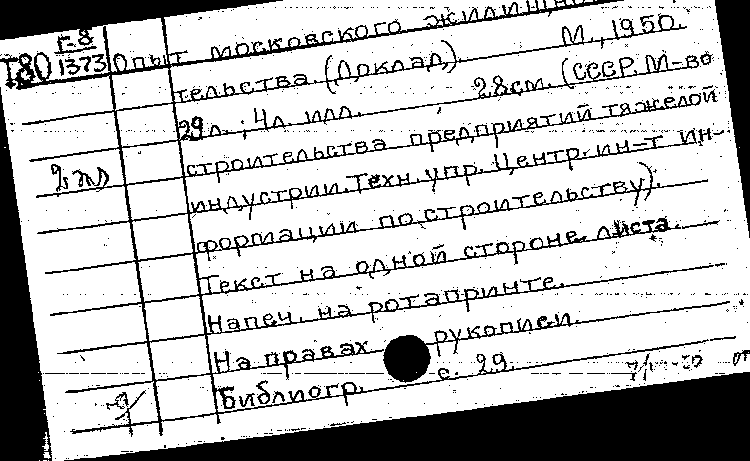 Г-8
180 1373 Опыт московского жилищн
тельства. (Доклад). М., 1950.
29л.; 4л. илл. 28см. (СССР. М-во
строительства предприятий тяжелой
индустрии. Техн. упр. Центр. ин-т ин-
формации по строительству).
Текст на одной стороне листа.
Напеч. на ротапринте.
На правах рукописи.
Библиогр. с. 29.
от